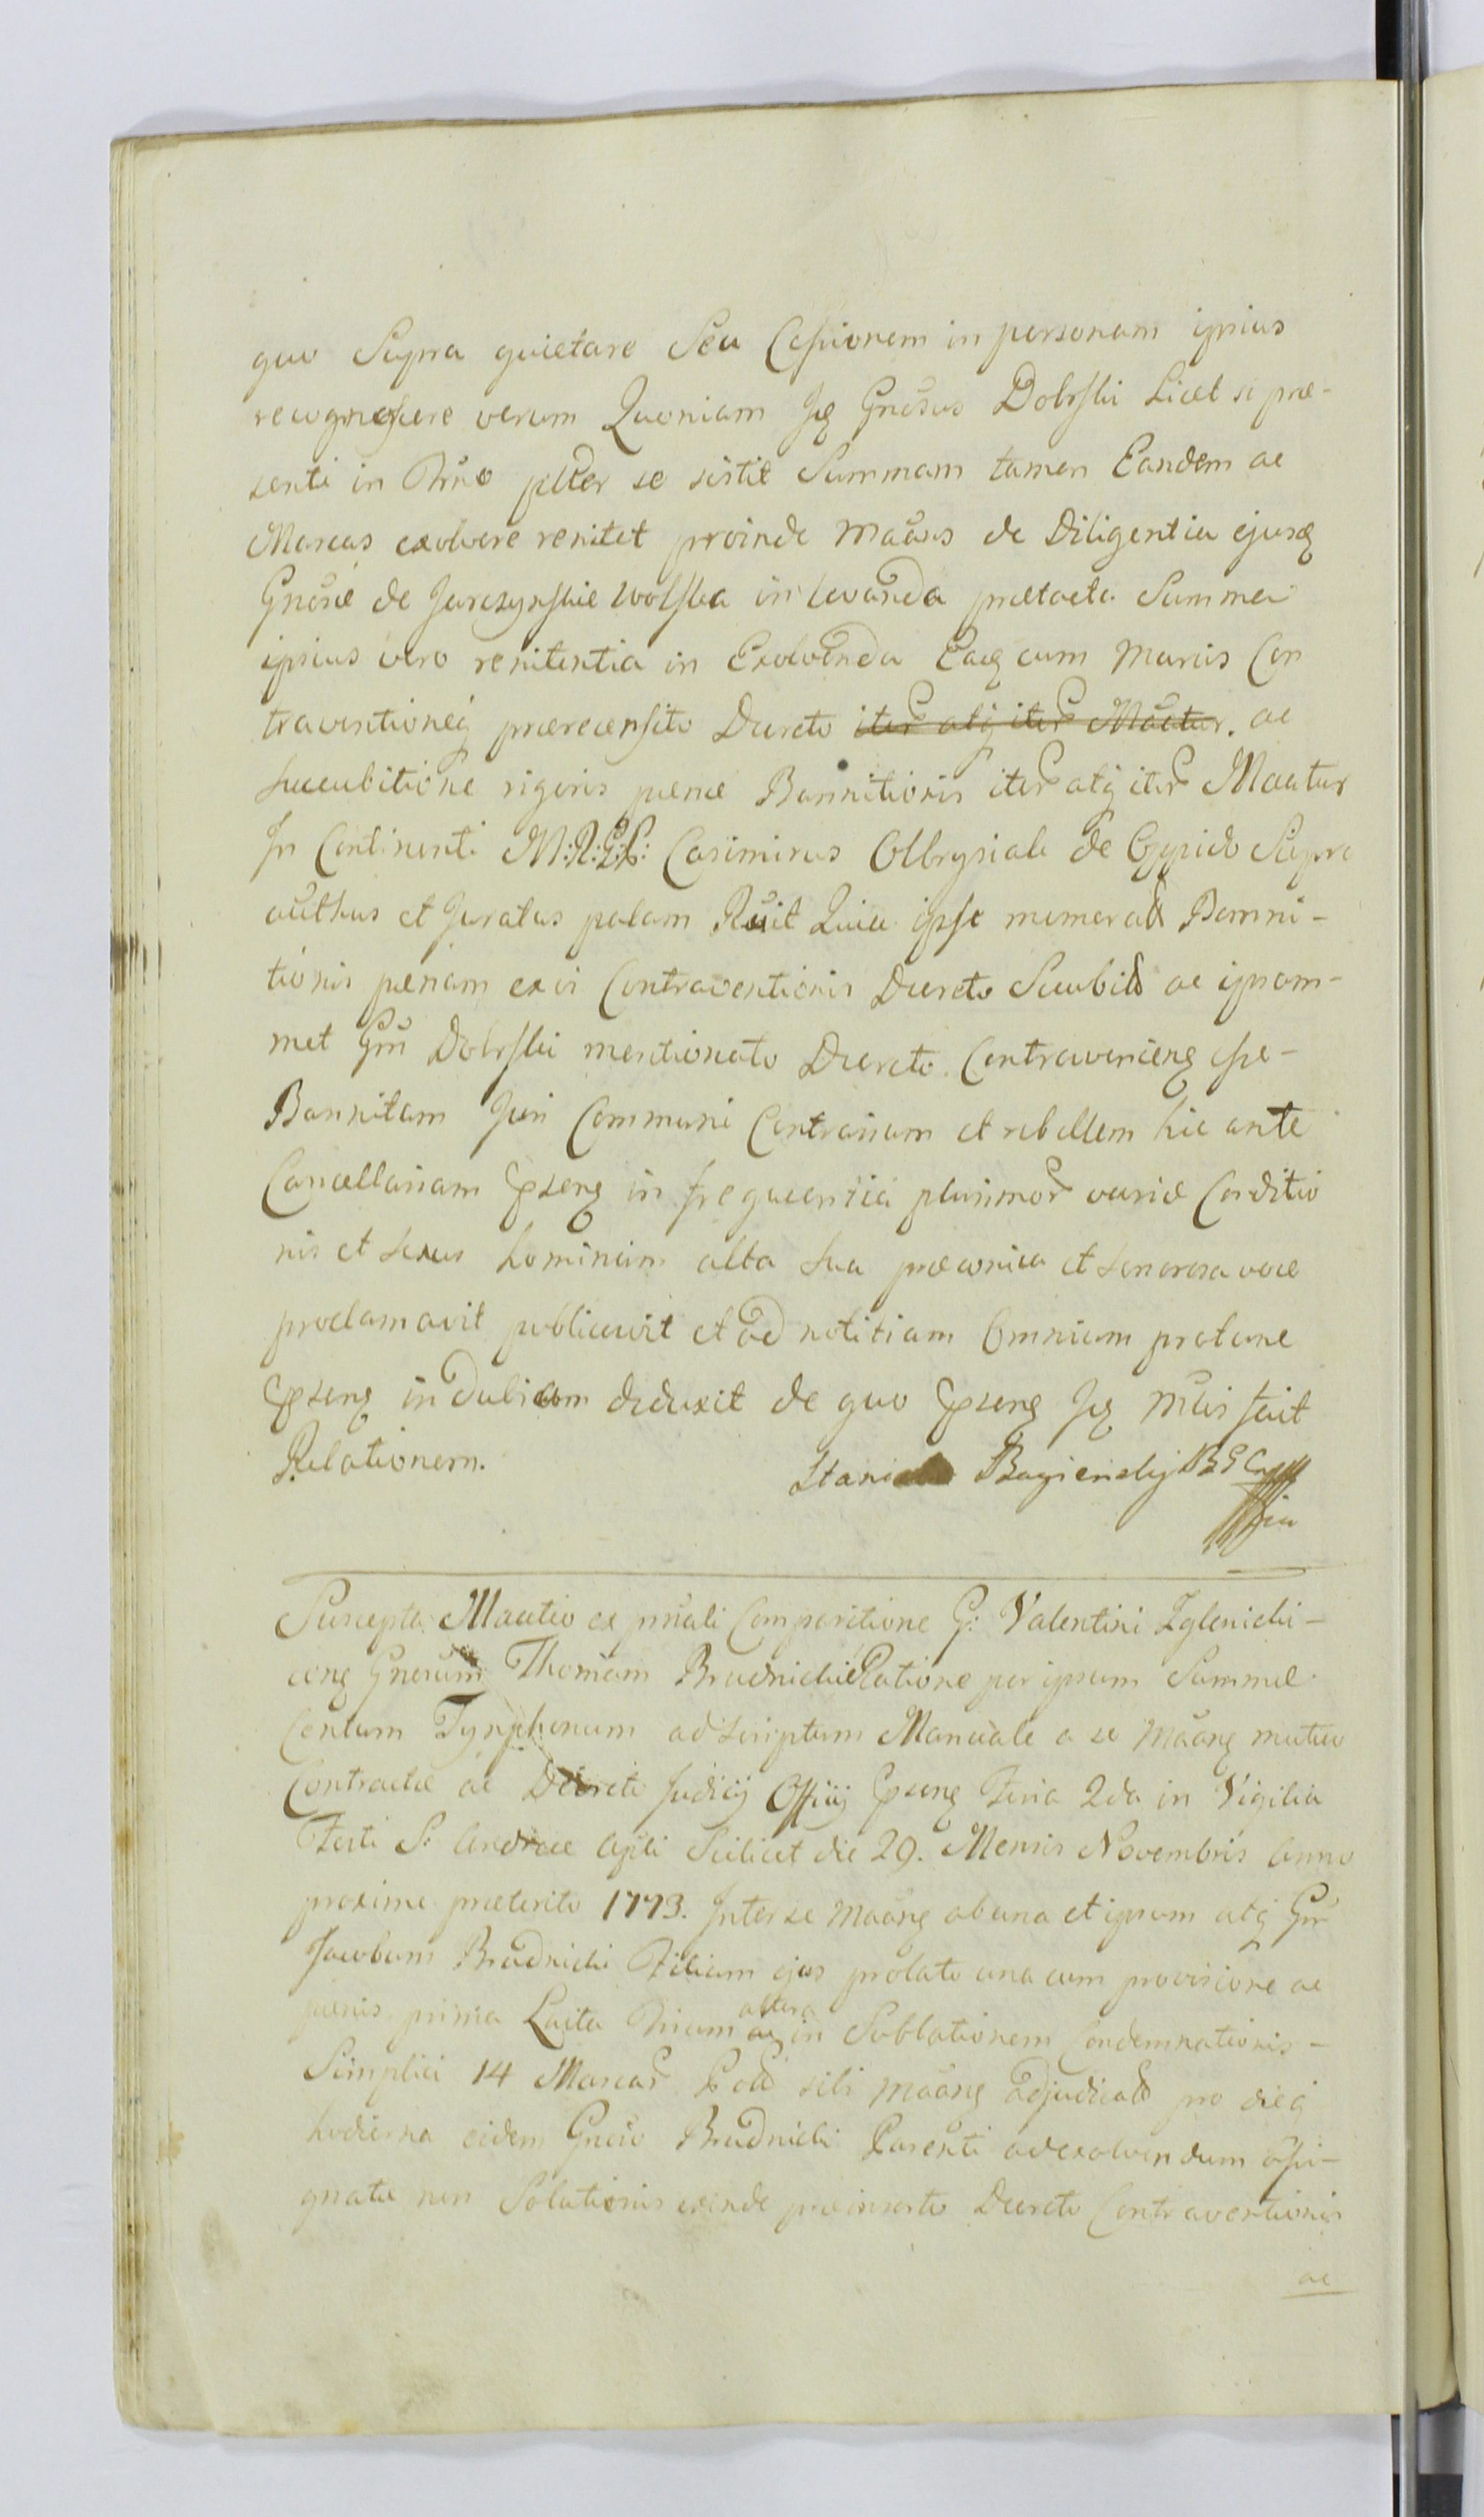 quo Supra quietare Seu Cessionem in personam ipsius
recognoscere verum Quoniam Iq Gnosus Dobrski Licet si præ-
senti in Tñno plter se sistit Summam tamen Eandem ac
Marcas exolvere renitet proinde Maãns de Diligentia ejusq
Gnosæ de Jarczynskie Wolska in levanda prætacta Summa
ipsius vero renitentia in Exolvenda Eaq cum Marcis Con
traventioneq prærecensito Decreto iter atq iter Maãtur. ac
succubitione rigoris pænæ Bannitionis iter atq iter Maãtur
In Continenti M:R:G:S: Casimirus Olbrysiak de Oppido Supra
authus et Juratus palam Rũit Quia ipse memorat Banni-
tionis pænam ex vi Contraventionis Decreto Succubit ac ipsum-
met Gm Dobrski mentionato Decreto Contravenieng esse
Bannitum Juri Communi Contrarium et rebellem hic ante
Cancellariam pseng in frequentia plurimor variæ Conditio
nis et sexus hominum alta sua præconica et sonorosa voce
proclamavit publicavit et ad notitiam Omnium pro tunc
pseng indubiam deduxit de quo pseng Iq Mlis fecit
Relationem.
Stanis Bagienskj B G C
Suscepta Maãtio ex prñali Comparitione G: Valentini Zglenicki-
cong Gnosum Thomam Brudnicki Ratione per ipsum Summæ
Centum Tynphonum ad scriptum Manuale a se Maãng mutuo
Contractæ ac Decreto Judicij Officij pseng Feria 2da in Vigilia
Festi S: Andreæ Apli Scilicet die 29. Mensis Novembris Anno
proxime præterito 1773. Inter se Maãng ab una et ipsum atq Gm
Jacobum Brudnicki Filium ejus prolato una cum provisione ac
pænis prima Luita Trium altera in Sublationem Condemnationis-
Simplici 14 Marcar Pold sibi Maãng adjudicat pro dieq
hodierna eidem Gnoso Brudnicki Parenti ad exolvendum assi-
gnatæ non Solutionis exinde præinserto Decreto Contraventionis
ac